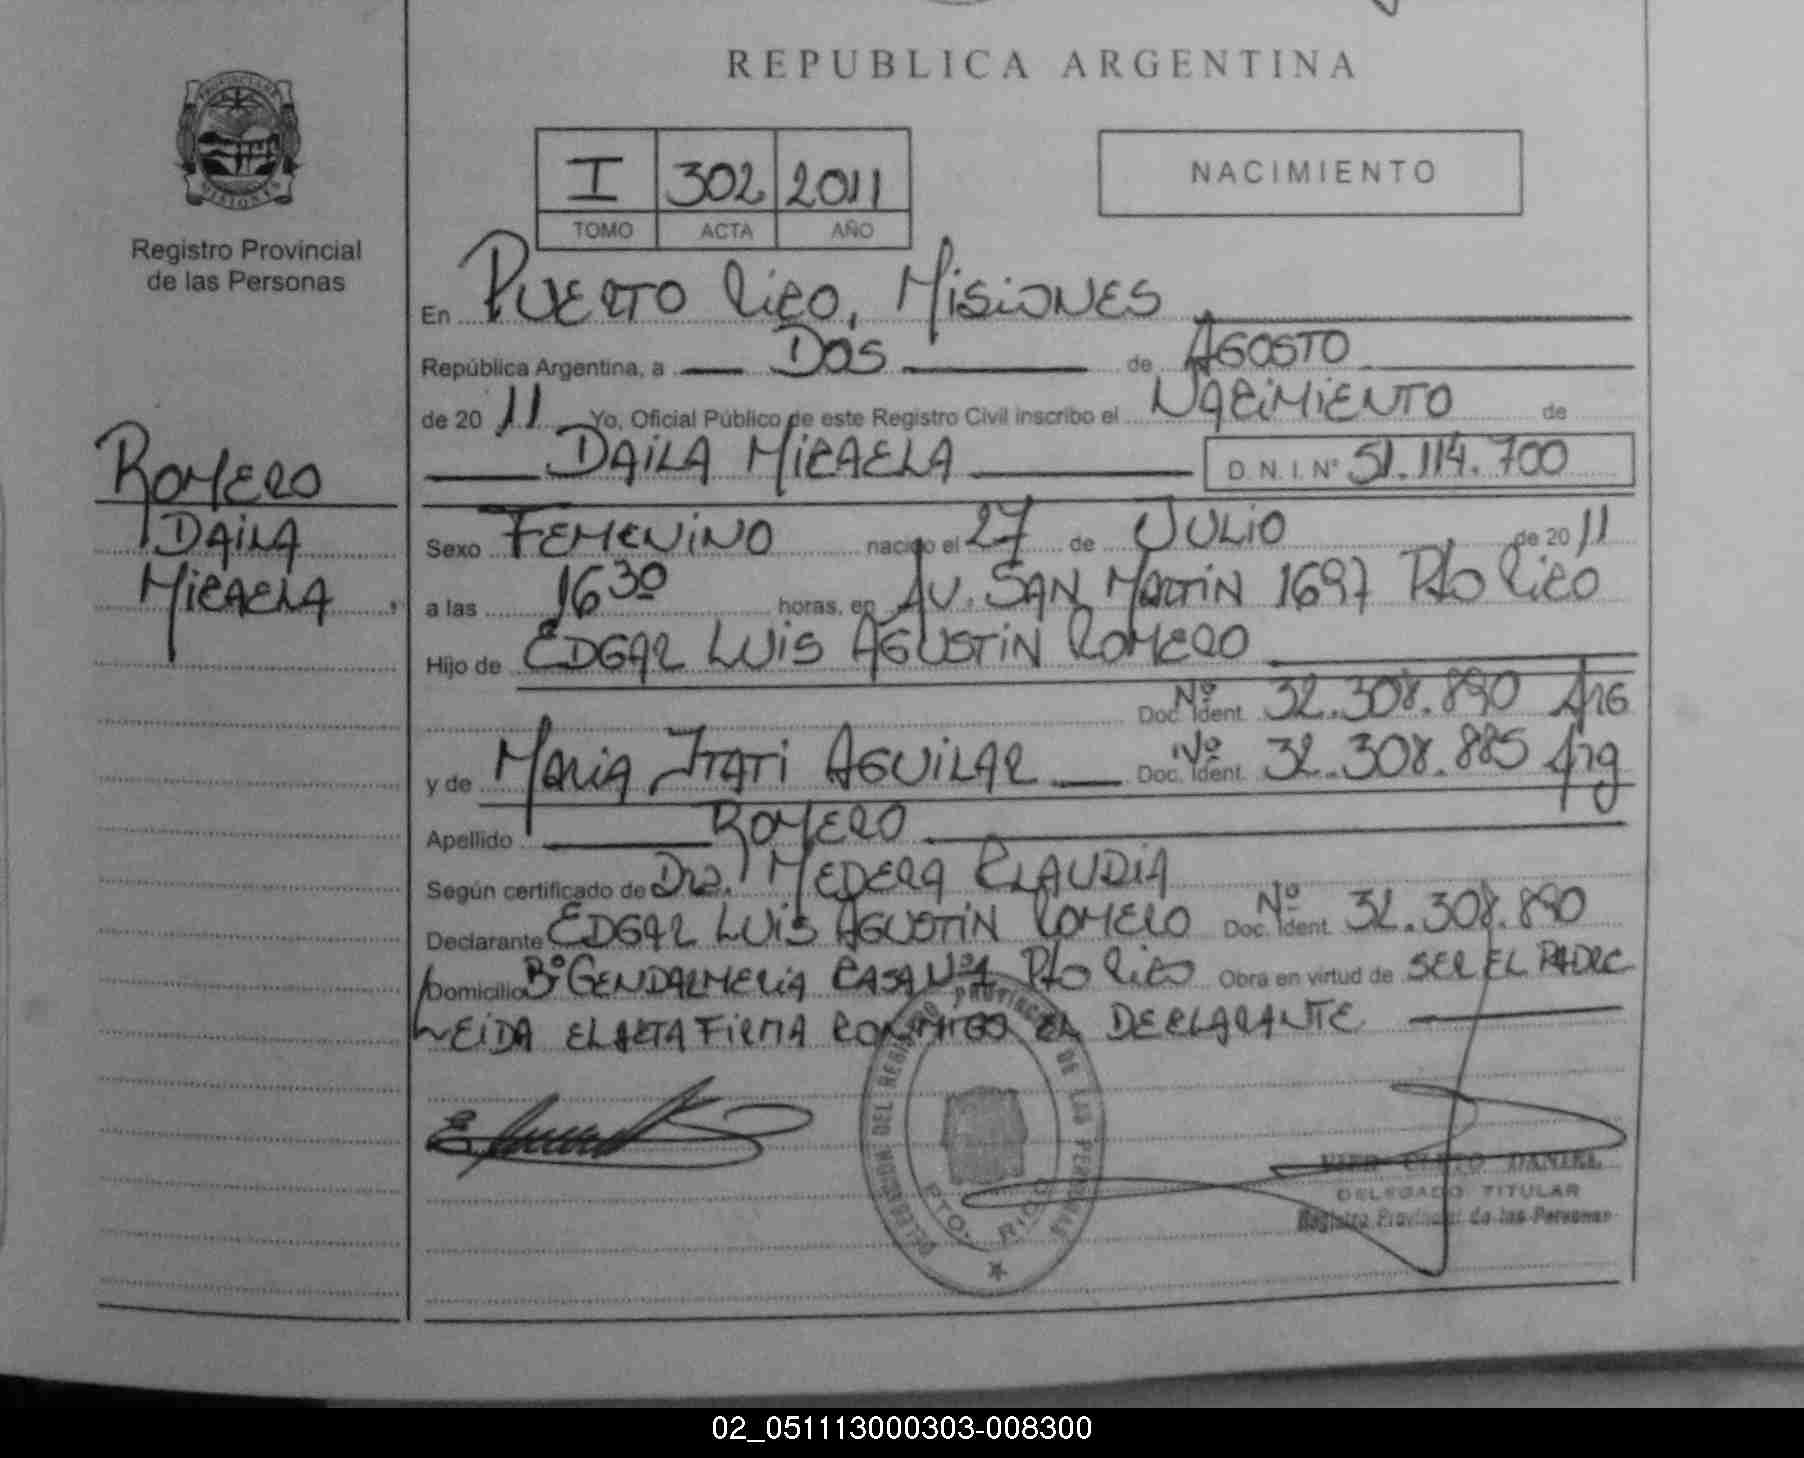 REPUBLICA ARGENTINA
PROVINCIA DE MISIONES
Registro Provincial
de las Personas
I 302 2011
TOMO ACTA AÑO
NACIMIENTO
En PUERTO RICO, MISIONES
República Argentina, a DOS de AGOSTO
de 2011 Yo, Oficial Público de este Registro Civil inscribo el NACIMIENTO de
DAILA MICAELA D.N.I. Nº 51.114.700
ROMERO
DAILA
MICAELA
Sexo FEMENINO nacido el 27 de JULIO de 2011
a las 16 30 horas, en AV. SAN MARTIN 1697 Pto RICO
Hijo de EDGAR LUIS AGUSTIN ROMERO
Doc. Ident. Nº 32.308.890 ARG
y de MARIA ITATI AGUILAR Doc. Ident. Nº 32.308.885 Arg
Apellido ROMERO
Según certificado de Dra. MEDERA CLAUDIA
Declarante EDGAR LUIS AGUSTIN ROMERO Doc. Ident. Nº 32.308.890
Domicilio Bº GENDARMERIA CASA Nº 4 Pto RICO Obra en virtud de SER EL PADRE
LEIDA EL ACTA FIRMA CONMIGO EL DECLARANTE
DELEGACION DEL REGISTRO PROVINCIAL DE LAS PERSONAS
PTO. RICO
DANIEL
DELEGADO TITULAR
Registro Provincial de las Personas
02_051113000303-008300